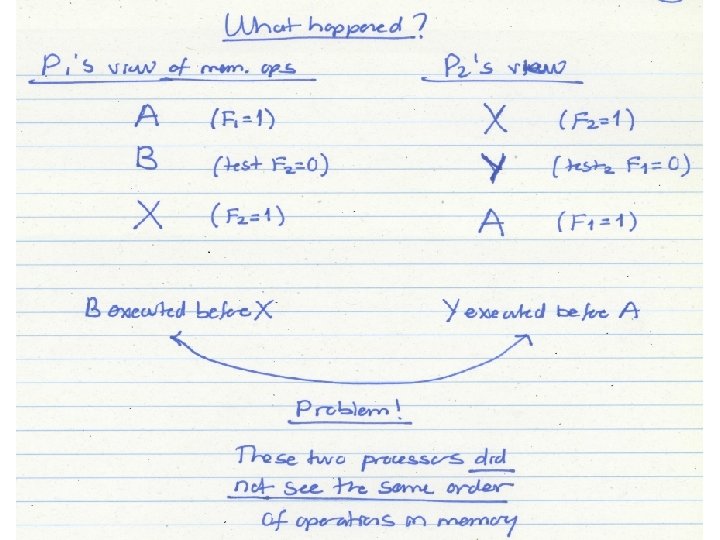 What happened?
P1's view of mem. ops
A (F1=1)
B (test F2=0)
X (F2=1)
P2's view
X (F2=1)
Y (test2 F1=0)
A (F1=1)
B executed before X
Y executed before A
Problem!
These two processors did
not see the same order
of operations in memory